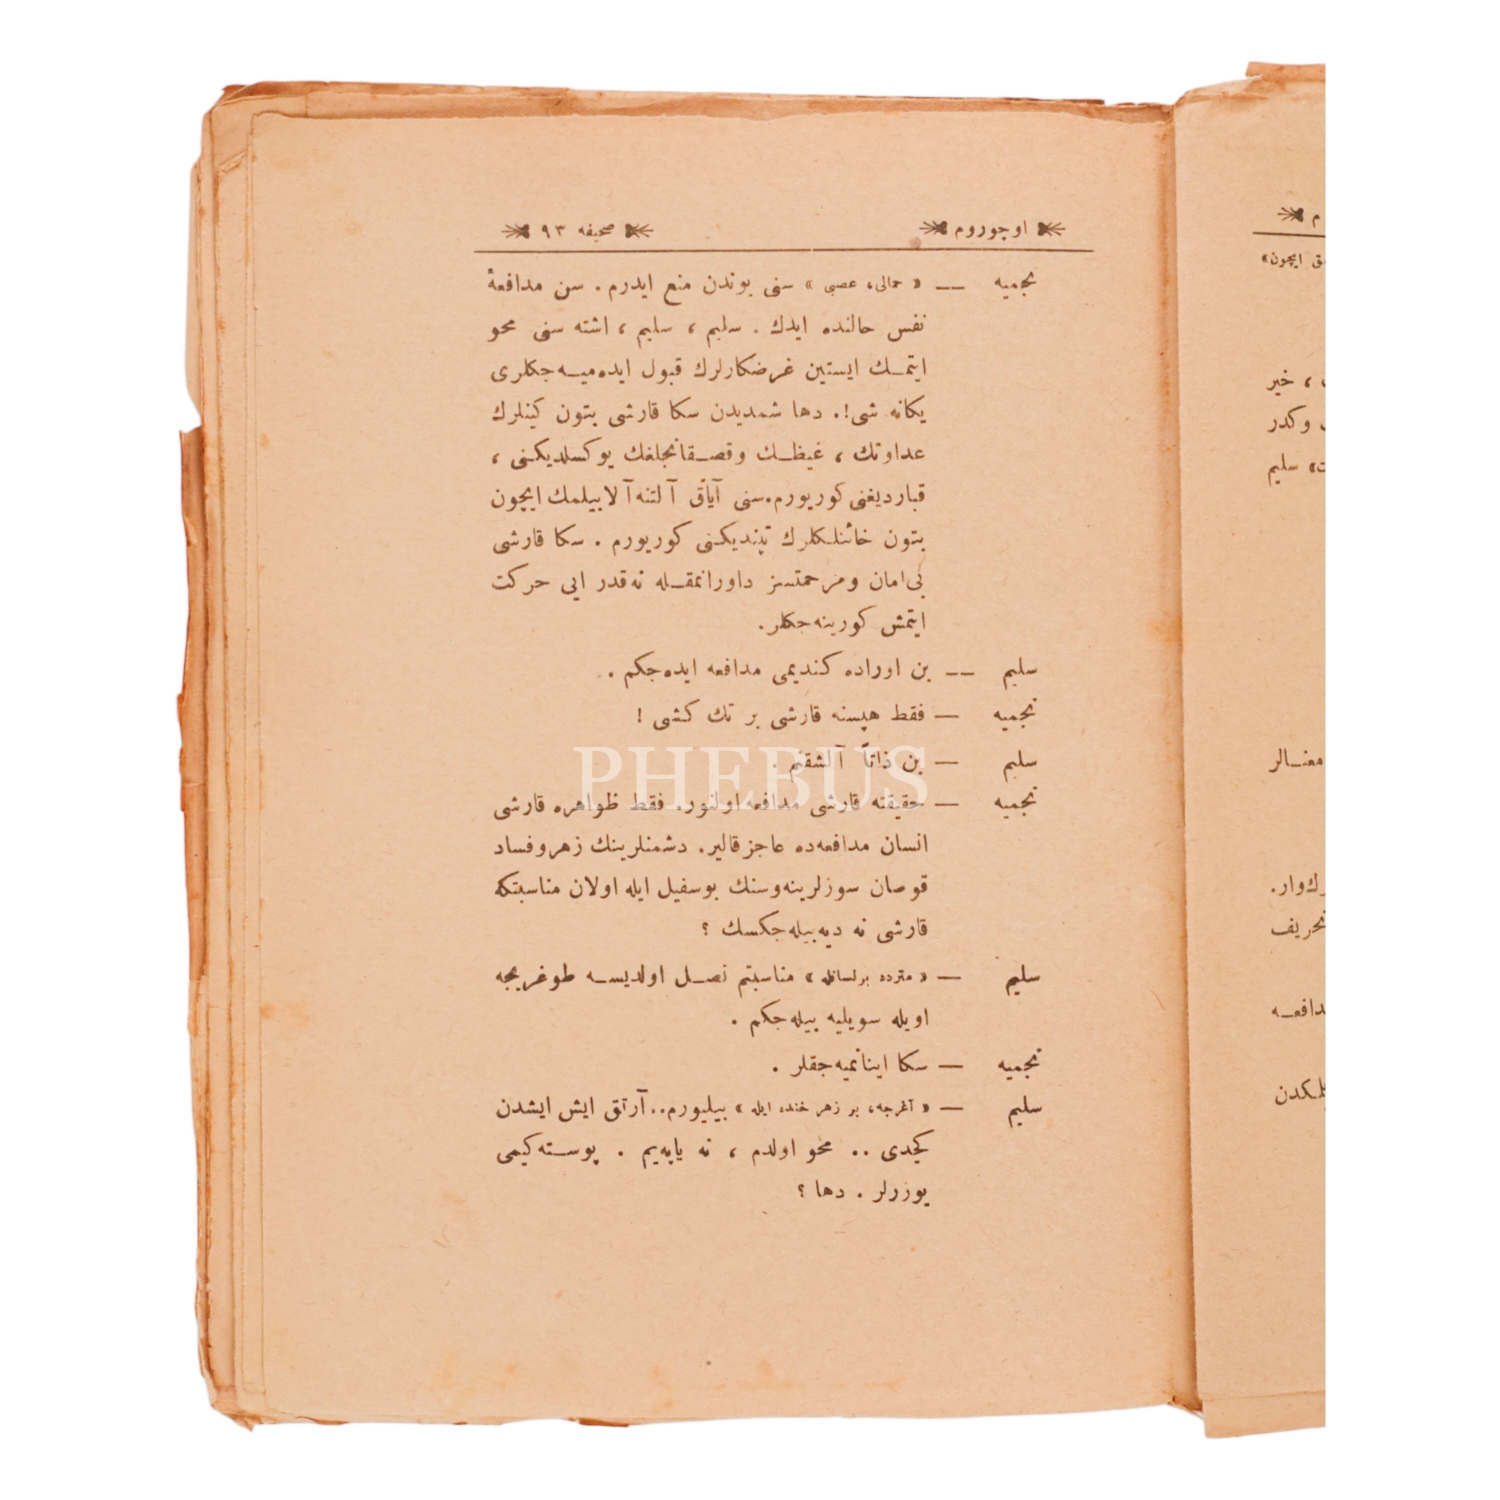 اوچوروم
صحیفه ۹۳
نجمیه — « حمالی، عصبی » سنی بوندن منع ایدرم . سن مدافعهٔ
نفس حالنده ایدك . سلیم ، سلیم ، اشته سنی محو
ایتمـك ایستین غرضکارلرك قبول ایده‌میـه‌جکلری
یکانه شی!. دها شمدیدن سکا قارشی بتون کینلرك
عداوتك ، غیظـك و قصـقانجلغك یوکسلدیکـنی ،
قباردیغنی کوریورم.سنی آیاق آلتنه آلابیلمك ایچون
بتون خائنلـکلرك تپندیکـنی کوریورم . سکا قارشی
بی‌امان ومرحمتسز داورانمقـله نه‌قدر ایی حرکت
ایتمش کورینه‌جکلر.
سلیم — بن اوراده کندیمی مدافعه ایده‌جکم .
نجمیه — فقط هپسنه قارشی بر تك کشی !
سلیم — بن ذاتاً آلشقنم .
نجمیه — حقیقته قارشی مدافعه‌اولنور. فقط ظواهره قارشی
انسان مدافعه‌ده عاجزقالیر. دشمنلرینك زهروفساد
قوصان سوزلرینه‌وسنك بوسفیل ایله اولان مناسبتکه
قارشی نه دیه‌بیله‌جکسك ؟
سلیم — « متردد برلسانله » مناسبتم نصـل اولدیسـه طوغریجه
اویله سویلیه بیله‌جکم .
نجمیه — سکا اینانمیه‌جقلر .
سلیم — « آغرجه، بر زهر خنده ایله » بیلیورم..آرتق ایش ایشدن
کچدی .. محو اولدم ، نه یاپه‌یم . پوسـته‌کیمی
یوزرلر . دها ؟
م
ق ایچون»
، خیر
وکدر
» سلیم
معنـالر
رك‌وار.
تحریف
مدافعـه
یلـکدن
PHEBUS